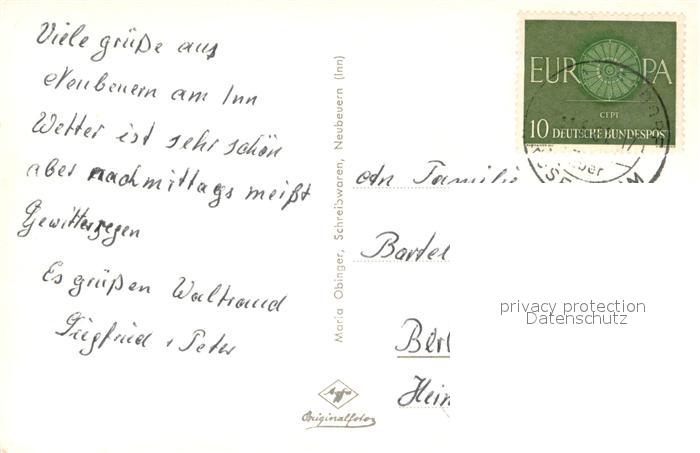 Viele grüße aus
Neubeuern am Inn
Wetter ist sehr schön
aber nachmittags meißt
Gewitterregen
Es grüßen Waltraud
Siegfried, Peter
Maria Obinger, Schreibwaren, Neubeuern (Inn)
Agfa
Originalfoto
EUROPA
CEPT
10 DEUTSCHE BUNDESPOST
An Familie
Bartel
Berl
Hein
privacy protection
Datenschutz